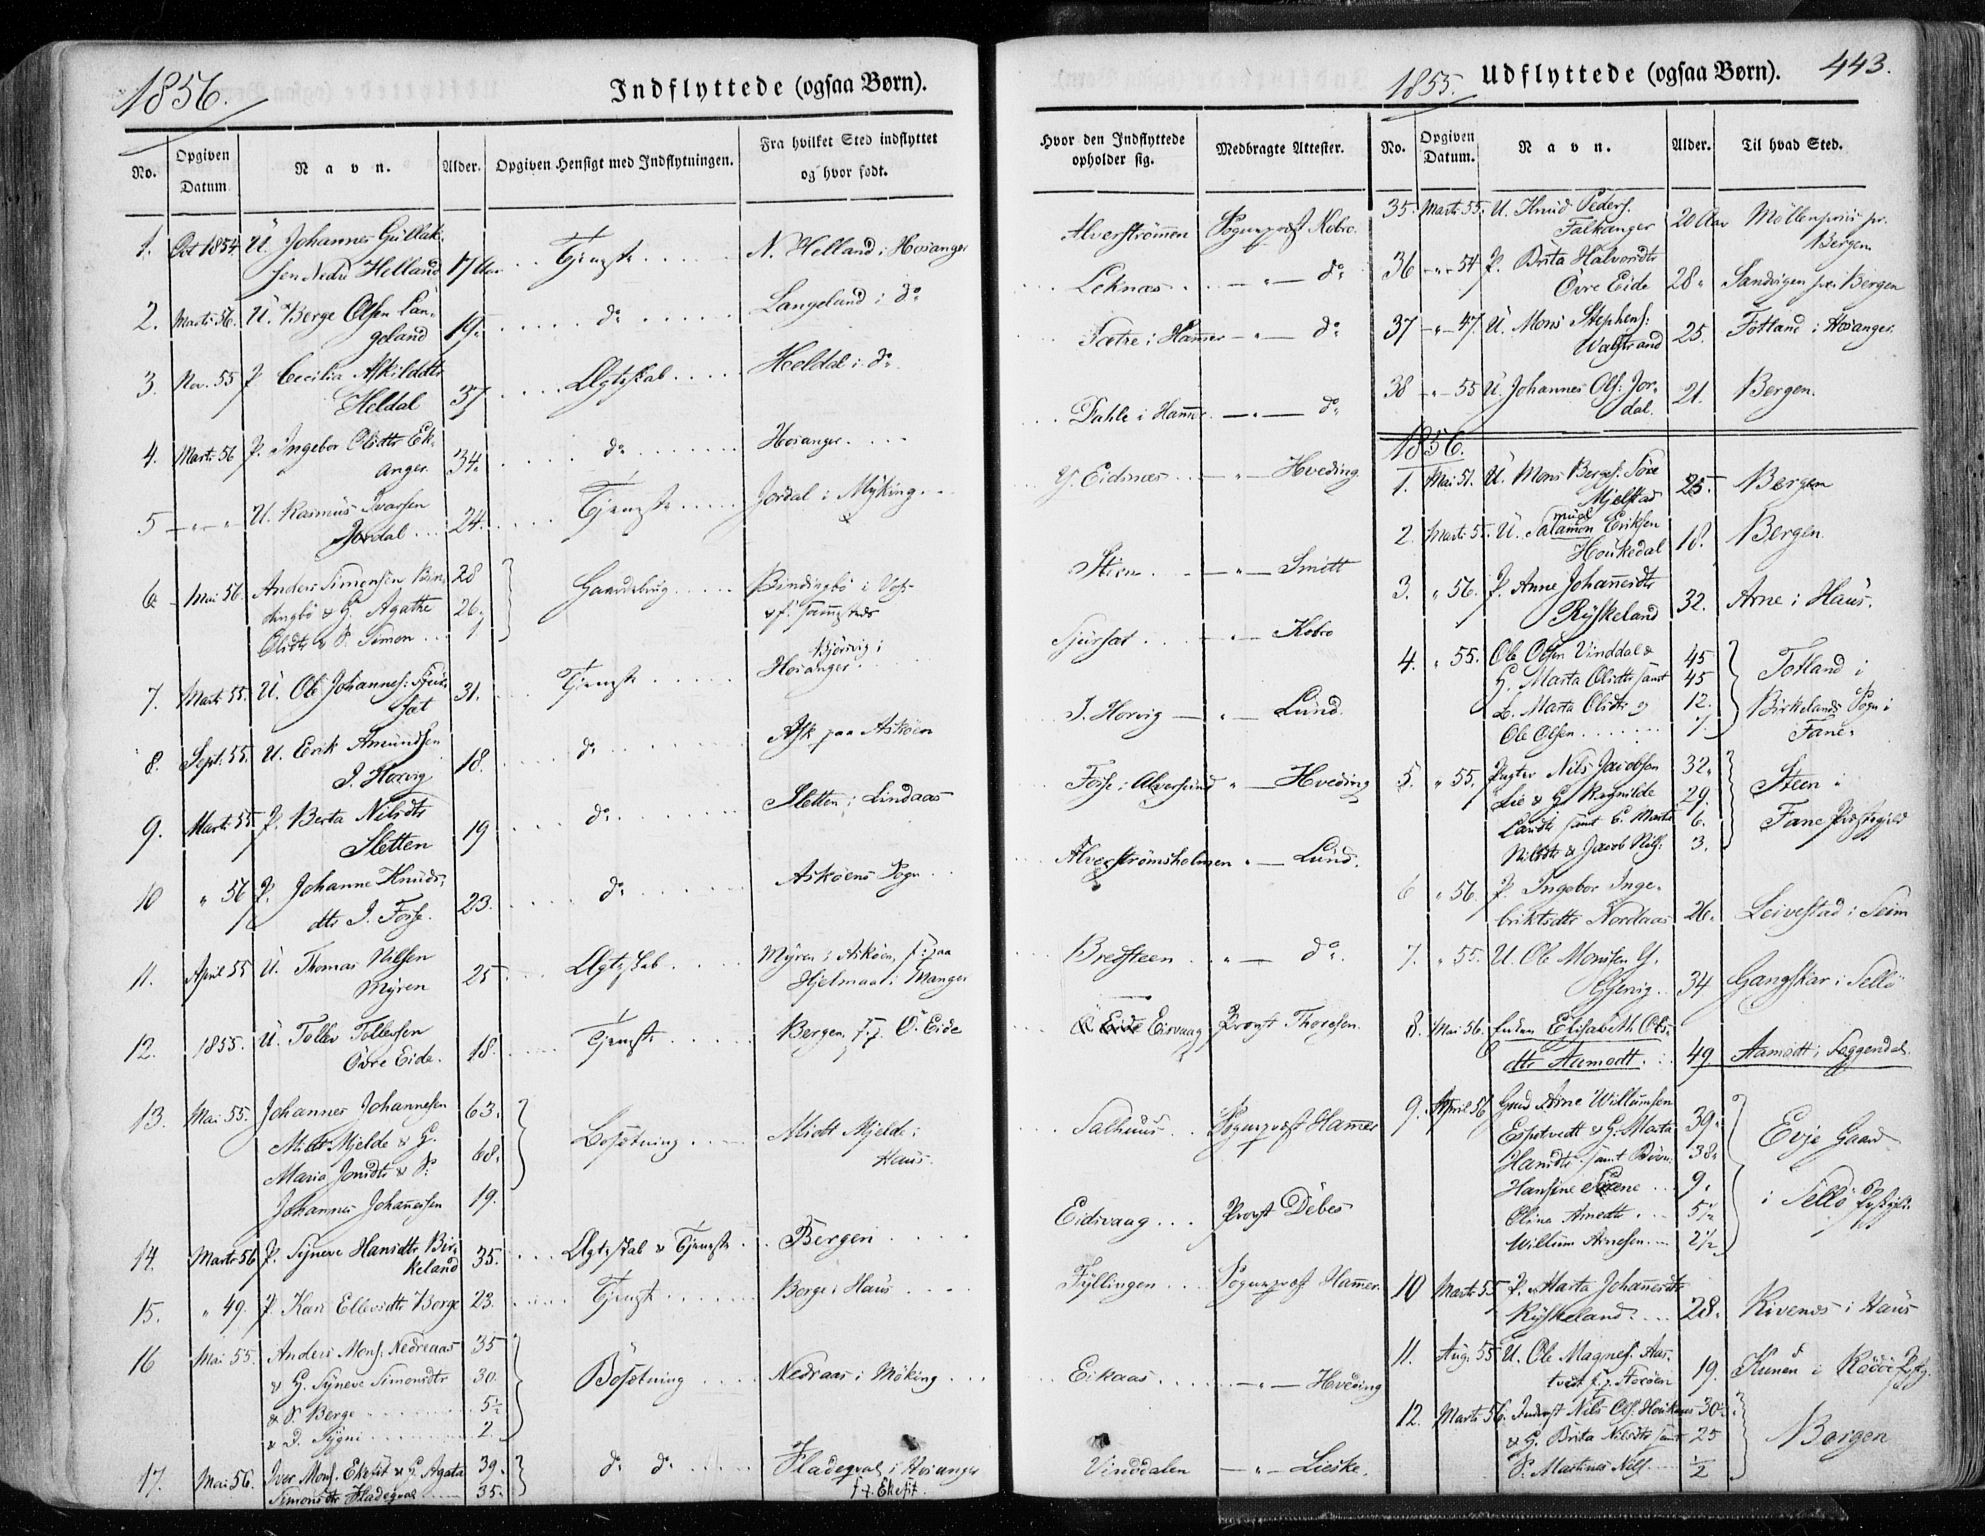 1856.
Indflyttede (ogsaa Børn).
No.
Opgiven Datum
Navn.
Alder.
Opgiven Hensigt med Indflytningen.
Fra hvilket Sted indflyttet og hvor født.
1. Oct 1854 U. Johannes Gullak-
sen Nedre Helland 17 Aar Tjeneste N. Helland i Hosanger
2. Marts 56. U. Berge Olsen Lan-
geland 19. do Langeland i do
3. Nov. 55 P. Cecilia Askildsdtr
Heldal 37 Ægteskab Heldal i do.
4. Marts 56 P. Ingebor Olsdtr Ek-
anger 34. do Hosanger.
5 U. Rasmus Ivarsen
Jordal 24. Tjeneste Jordal i Myking
6 Mai 56. Anders Simonsen Bin- 28
dingbø & G. Agathe 26 Gaardsbrug Bindingbø i Vos
Olsdtr & S. Simon 1 & f. sammesteds
7. Marts 55. U. Ole Johannes: Sjur-
sæt 31. Tjeneste Hosanger
8. Sept. 55. U. Erik Amundsen
I. Horvig 18. do Ask paa Askøen
9. Marts 55 P. Berta Nilsdtr
Sletten 19 do Sletten i Lindaas
10 " 56 P. Johanne Knuds-
dtr I. Fosse. 23. do Askøens Sogn
11. April 55 U. Thomas Nilsen
Myren 25 Ægteskab Myren i Askøen, f: paa
Hjelmaas i Manger
12. 1855. U. Tollev Tollevsen
Øvre Eide. 18. Tjeneste Bergen, f. p. Ø. Eide
13. Mai 55. Johannes Johannesen 63.
Midt Mjelde & G. 68. Bosætning Midt Mjelde i
Maria Jonsdtr & S. Haus.
Johannes Johannesen 19.
14. Marts 56 P. Synneve Hansdtr Bir-
keland 35. Ægteskab & Tjeneste Bergen
15. " 49. P. Kari Ellevsdtr Borge 23. Tjeneste Borge i Haus
16 Mai 55. Anders Mons. Nedreaas 35
& G. Synneve Simonsdtr 30. Bosætning Nedraas i Möking
& S. Berge 5½
& D. Sygni 2
17. Mai 56. Iver Mons. Ekesit & G. Agata 39. do do Fladeqval i Hosanger
Simonsdtr Fladeqval 35. f. p. Ekesit.
1855.
Udflyttede (ogsaa Børn).
443.
Hvor den Indflyttede opholder sig.
Medbragte Attester.
No.
Opgiven Datum.
Navn.
Alder.
Til hvad Sted.
Alverstrømmen Sogneprest Kobro.
Leknæs do
Sætre i Hammer do
Dahle i Hammer. do
Y. Eidsnæs Hveding
Steen Smitt
Sjursæt Kobro
I. Horvig Lund.
Fosse i Alversund Hveding
Alverstrømsholmen Lund.
Bredsteen do.
Eidsvaag Provst Thoresen.
Salhuus Sogneprest Hammer
Eidsvaag Provst Debes
Fyllingen Sogneprest Hammer.
Eikaas Hveding
Vinddalen Lieske.
35. Marts 55. U. Knud Peders.
Falkanger 20 Aar Möllenpriis pr.
Bergen
36 54 P. Brita Halvorsdtr
Øvre Eide 28 Sandvigen pr. Bergen
37 47 U. Mons Stephens:
Walstrand 25. Totland i Hosanger.
38 55 U. Johannes Ols: Jor-
dal. 21. Bergen.
1856.
1. Mai 51. U. Mons Berges. Søre
Mjelstad 25. Bergen
2. Marts 55. U. Salamon Eriksen
Houkedal 18. Bergen
3. " 56. P. Anne Johannesdtr
Rÿskeland 32. Arne i Haus.
4. " 55. Ole Olsen Vinddal & 45
G. Marta Olsdtr samt 45 Totland i
D. Marta Olsdtr og 12. Birkelands Sogn i
Ole Olsen 7. Fane.
5. " 55. Pagter Nils Jacobsen 32.
Lie & G. Ragnilde 29. Steen i
Larsdtr samt C. Marta 6. Fane Præstegjeld
Nilsdtr & Jacob Nils: 3.
6 " 56. P. Ingebor Inge-
briktsdtr Nordaas 26. Leivestad i Seim
7. " 55. U. Ole Monsen Y.
Gjervig 34 Gangskar i Sellö
8. Mai 56. Enken Elisabeth Ols-
dtr Aamodt. 49 Aamodt i Soggendal.
9. April 56 Gmd Arne Willumsen
Espetvedt & G. Marta 39. Evje Gaard
Hansdtr samt Børn 38. i Sellö
Hansine Serene 9.
Oline Arnesdtr 5½
Willum Arnesen 2½
10 Marts 55 P. Marta Johannesdtr
Rÿskeland. 28. Rivenæs i Haus
11. Aug. 55 U. Ole Magnes. Aas-
tvedt 19.
12. Marts 56. Inderst Nils Ols. Houkaas 30
& G. Brita Nilsdtr samt 25 Bergen
S. Martinus Nils. ½